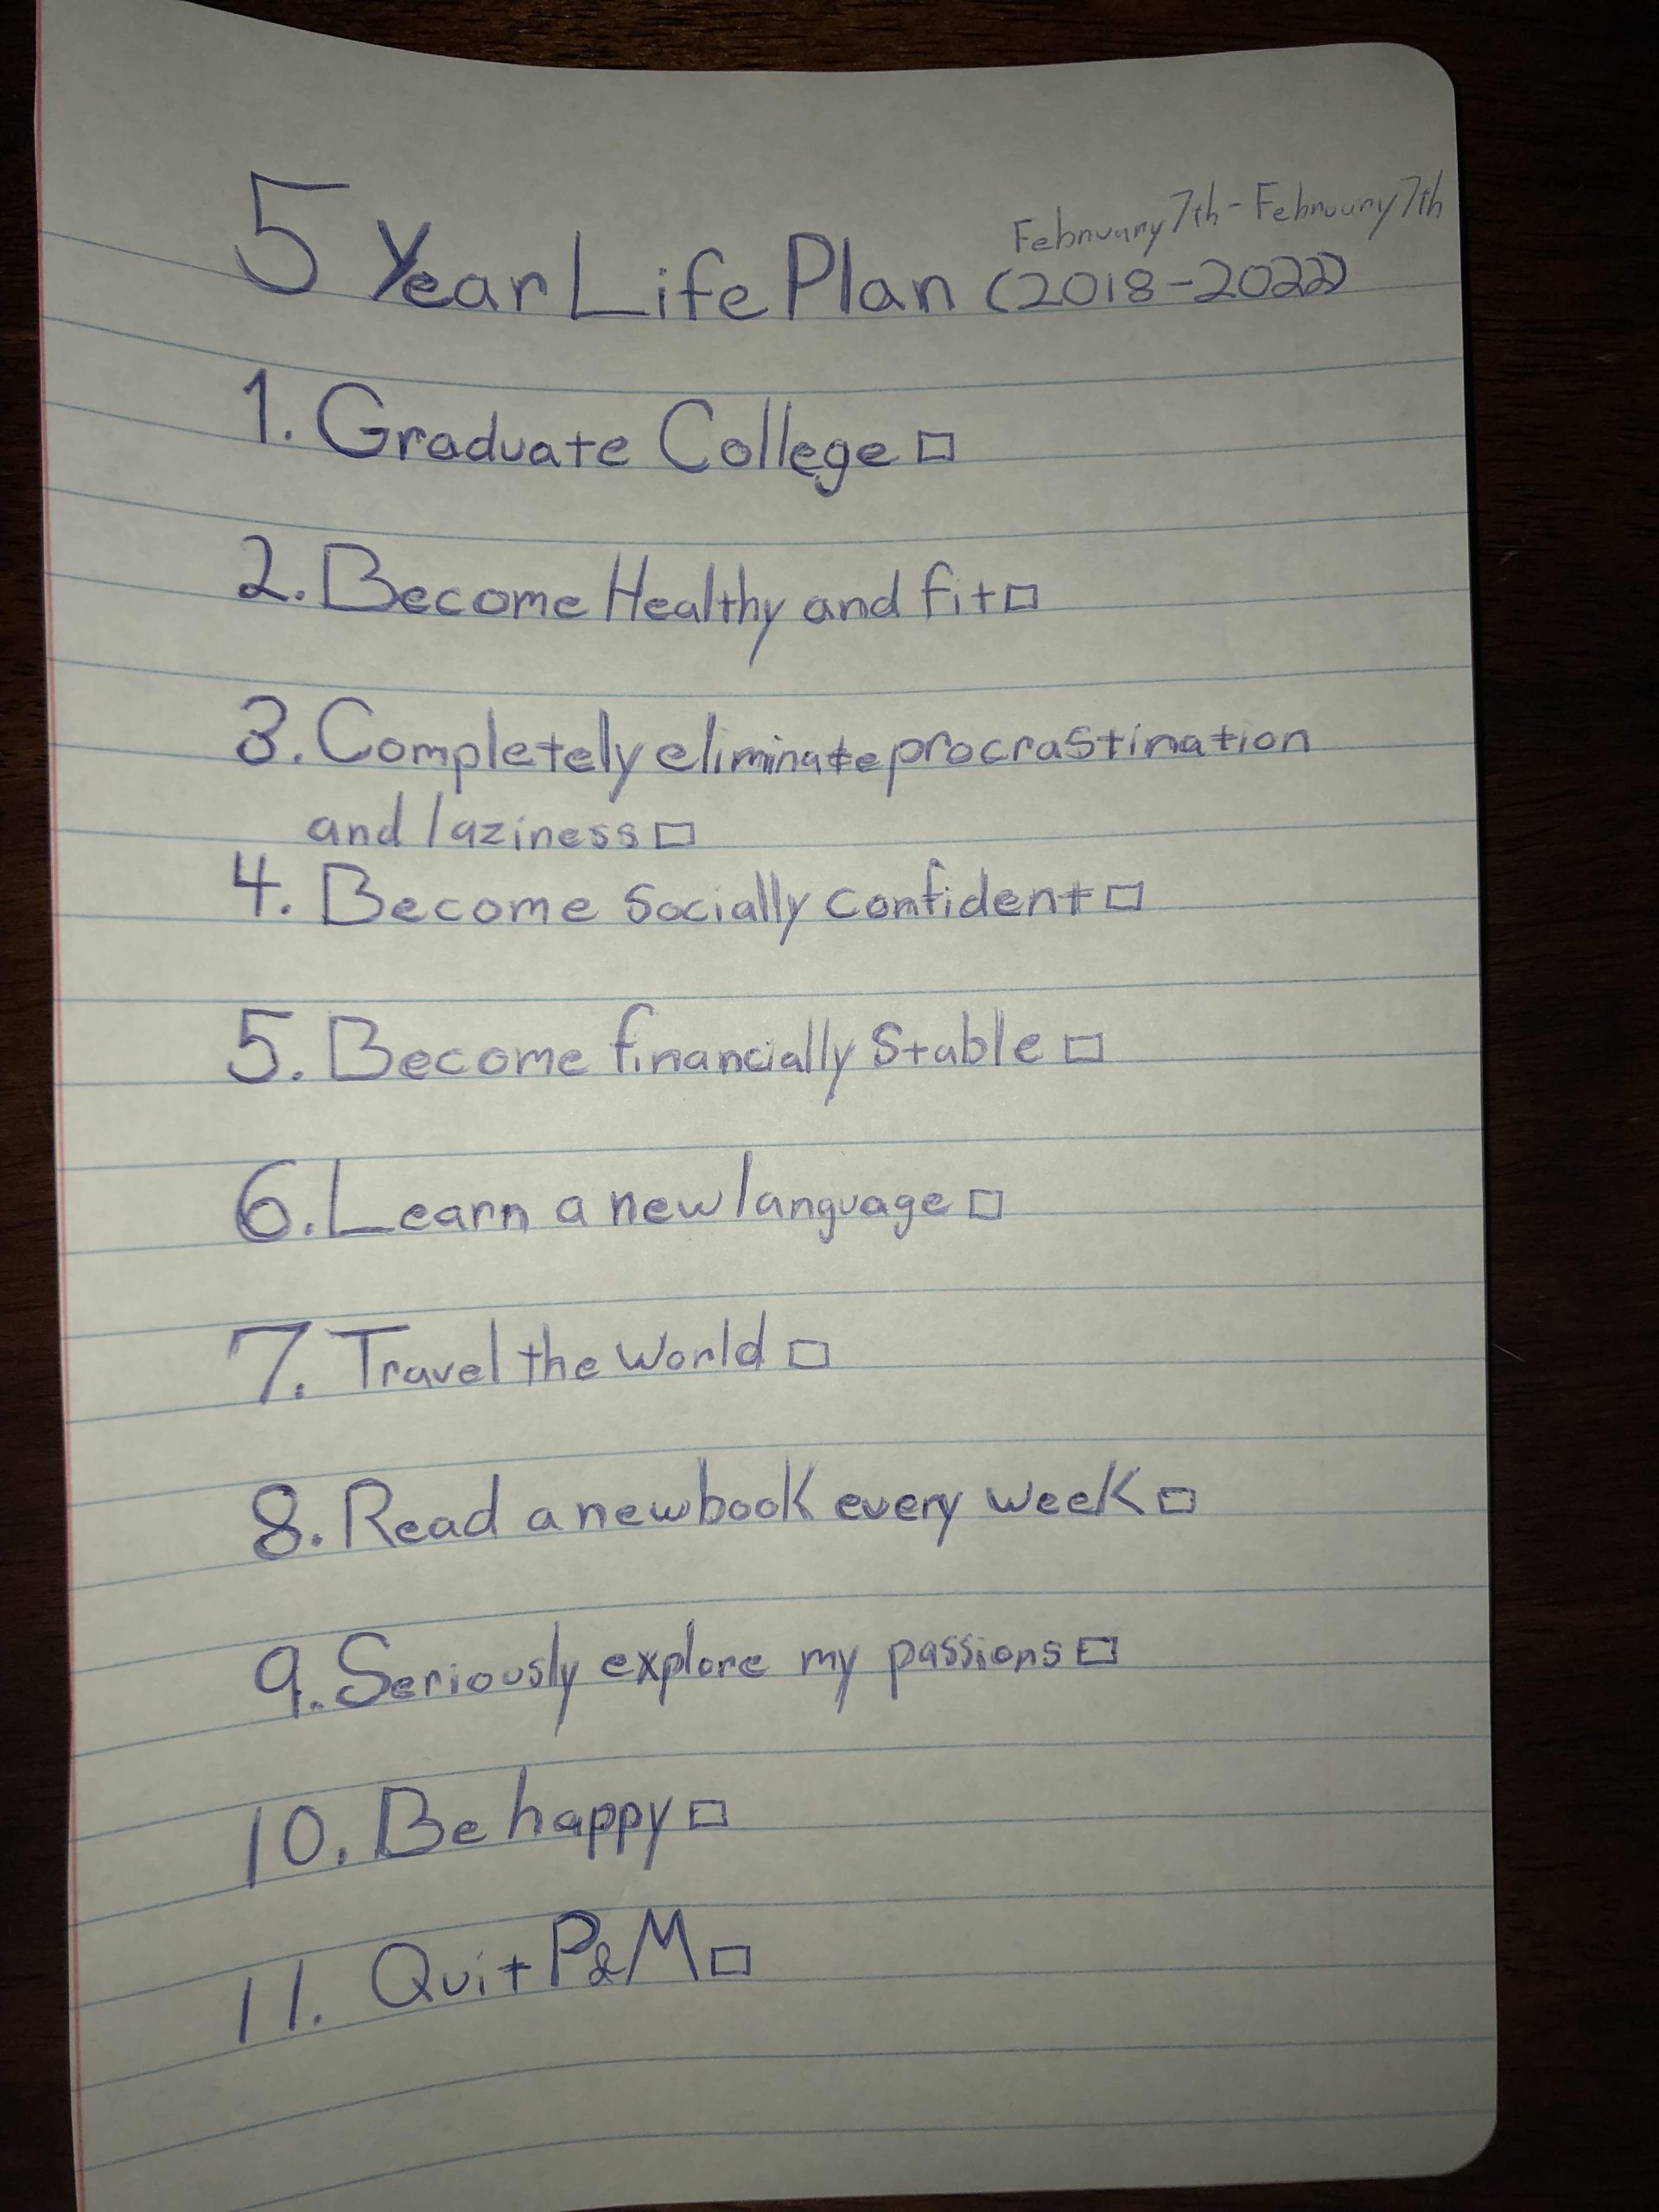 February 7th - February 7th
5 Year Life Plan (2018-2022)
1. Graduate College □
2. Become Healthy and fit □
3. Completely eliminate procrastination
and laziness □
4. Become Socially confident □
5. Become financially Stable □
6. Learn a new language □
7. Travel the world □
8. Read a new book every week □
9. Seriously explore my passions □
10. Be happy □
11. Quit P&M □